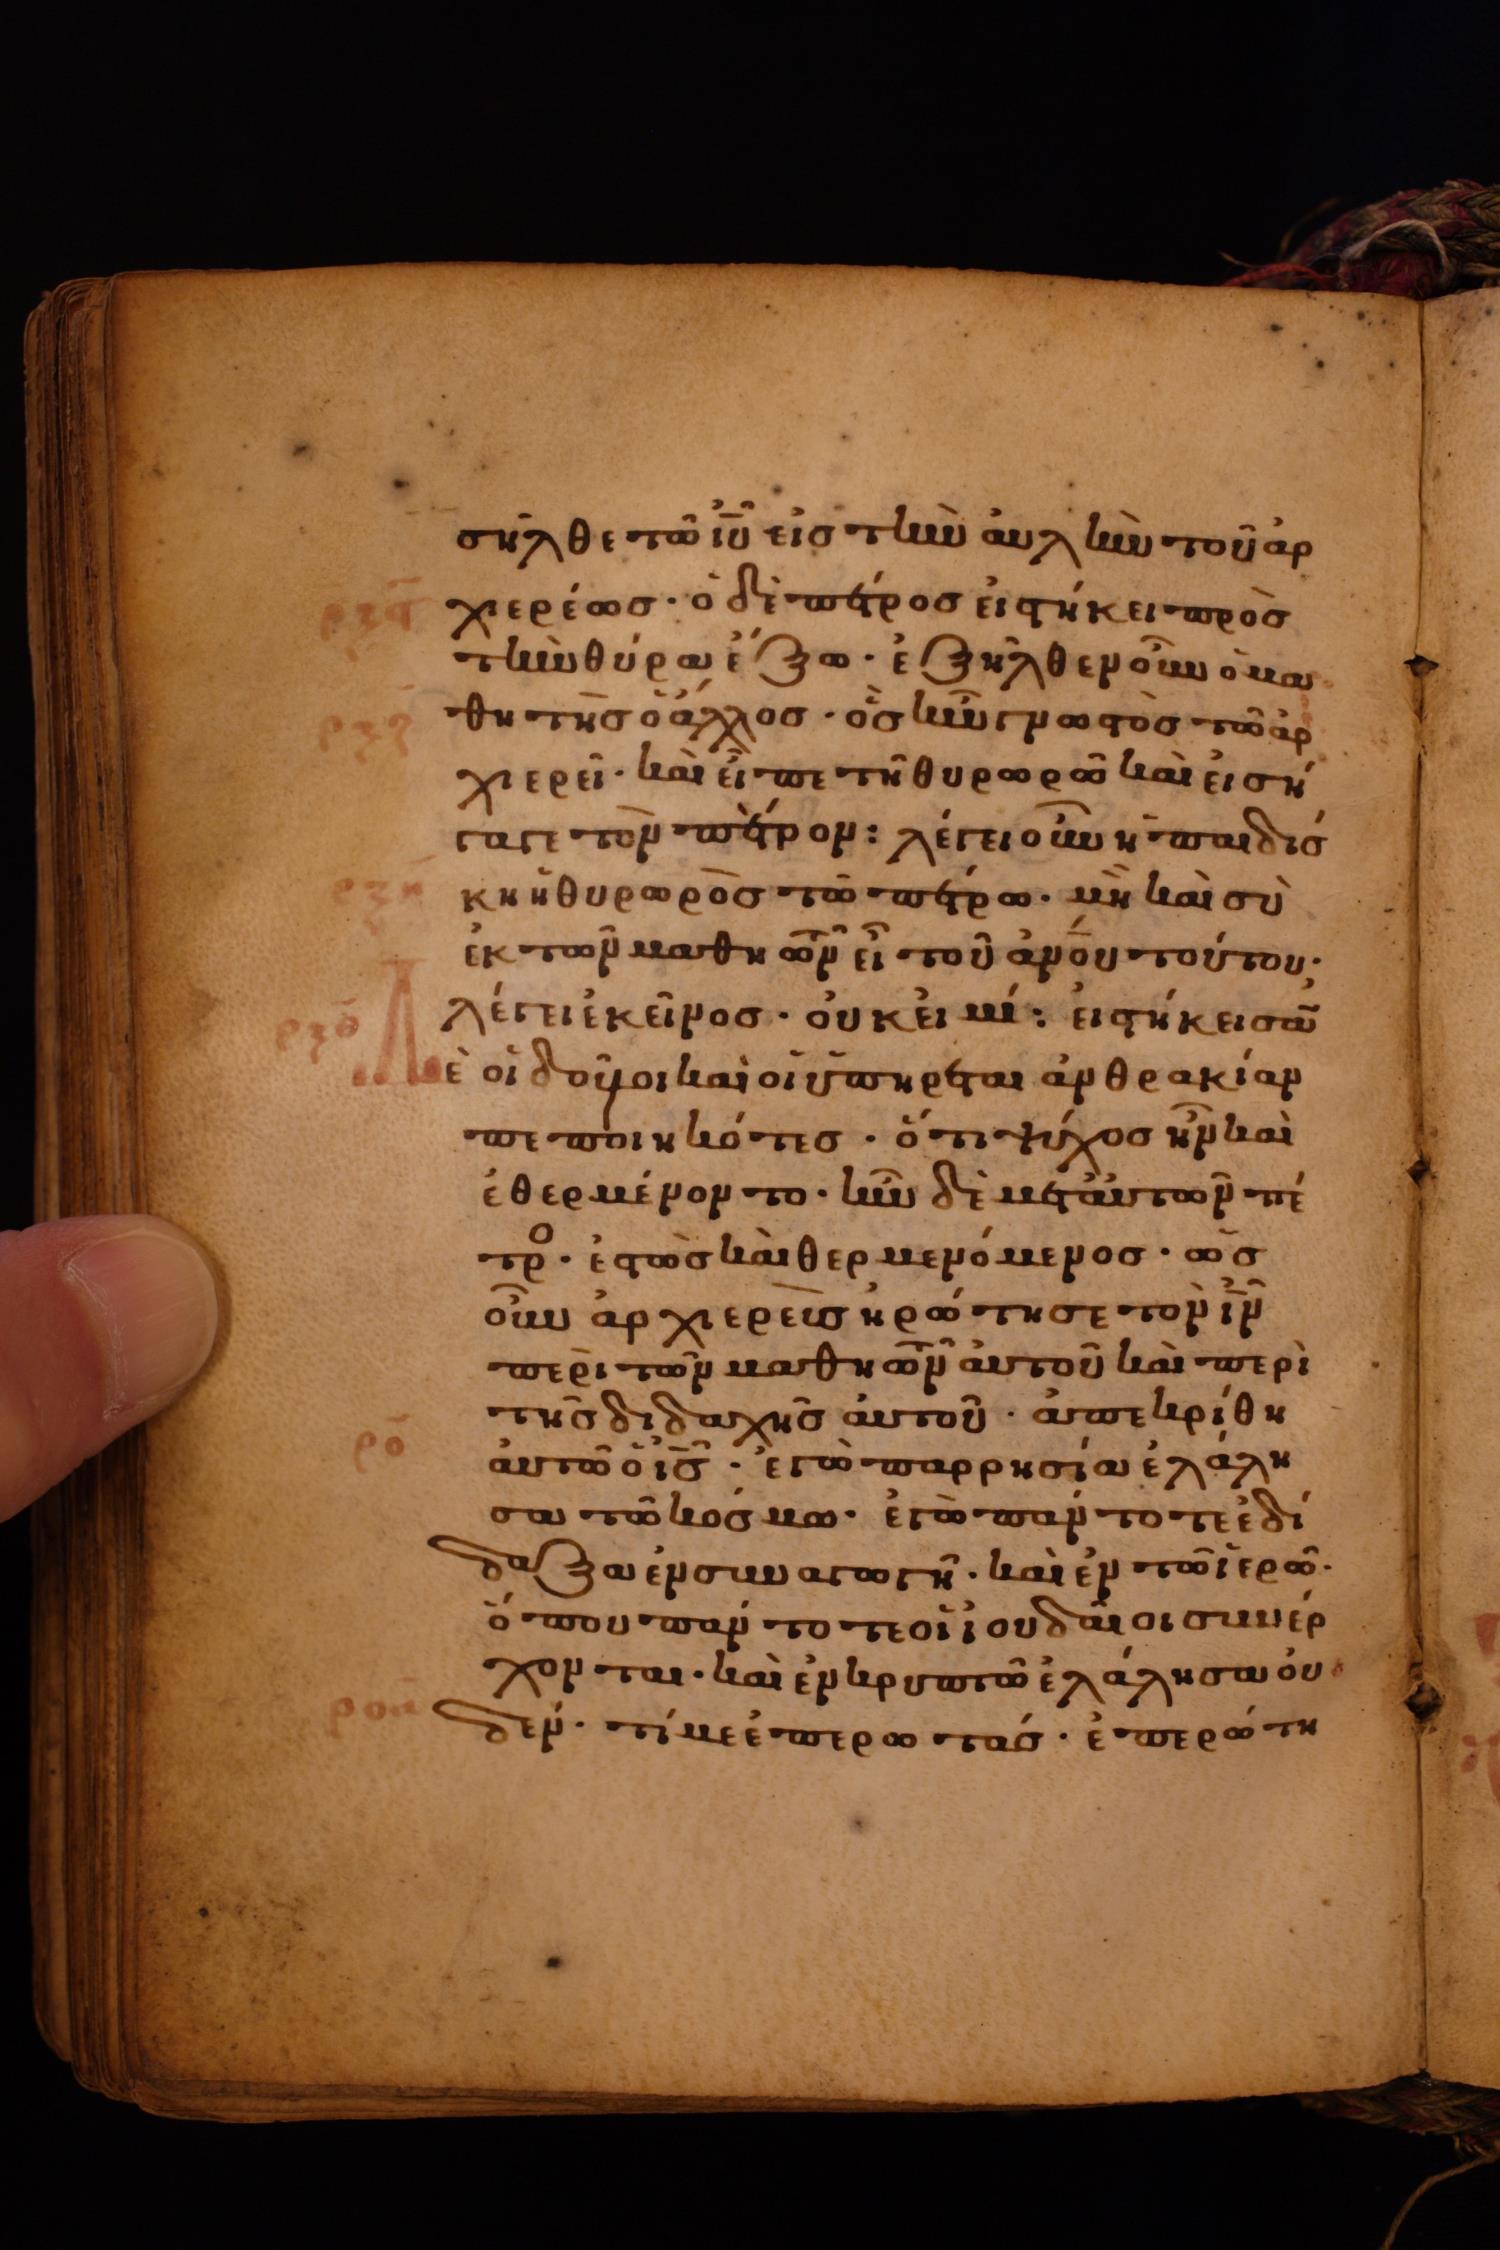 σῆλθε τῶ ἰῦ εἰσ τὴν ἀυλὴν τοῦ ἀρ
ρξϛ χιερέωσ · ὁ δὲ πέτροσ εἱστήκει πρὸσ
τὴν θύρα ἔξω · ἐξῆλθεν οὖν ὁ μα
ρξζ θητὴσ ὁ ἄλλοσ · ὃσ ἦν γνωστὸσ τῶ ἀρ
χιερεῖ · καὶ εἶπε τῆ θυρωρῶ καὶ εἰσή
γαγε τὸν πέτρον : λέγει οὖν ἡ παιδίσ
ρξη κη ἡ θυρωρὸσ τῶ πέτρω · μὴ καὶ σὺ
ἐκ τῶν μαθητῶν εἶ τοῦ ἀνου τούτου ·
ρξθ λέγει ἐκεῖνοσ · οὐκ εἰμί : εἱστήκεισαν
δὲ οἱ δοῦλοι καὶ οἱ ὑπηρέται ἀνθρακίαν
πεποιηκότεσ · ὅτι ψύχοσ ἦν καὶ
ἐθερμένοντο · ἦν δὲ μετ' ἀυτῶν πέ
τρο · ἑστὼσ καὶ θερμενόμενοσ · ὡσ
οὖν ἀρχιερεὺσ ἠρώτησε τὸν ἰν
περὶ τῶν μαθητῶν ἀυτοῦ καὶ περὶ
τῆσ διδαχῆσ ἀυτοῦ · ἀπεκρίθη
ρο ἀυτῶ ὁ ἰσ · ἐγὼ παρρησία ἐλάλη
σα τῶ κόσμω · ἐγὼ πάντοτε ἐδί
δαξα ἐν συναγωγῆ · καὶ ἐν τῶ ἱερῶ ·
ὅπου πάντοτε οἱ ἰουδαῖοι συνέρ
χονται · καὶ ἐν κρυπτῶ ἐλάλησα οὐ
ροα δέν · τί με ἐπερωτᾶσ · ἐπερώτη